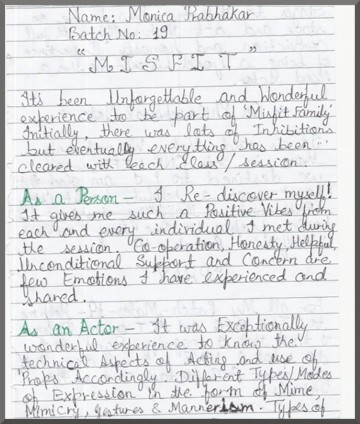 Name: Monica Prabhakar
Batch No: 19
"MISFIT"
Its been Unforgettable and Wonderful
experience to be part of 'Misfit Family'
Initially, there was lots of Inhibitions
but eventually everything has been
cleared with each class/session.
As a Person - I Re-discover myself!
It gives me such a Positive Vibes from
each and every individual I met during
the session. Co-operation, Honesty, Helpful,
Unconditional Support and Concern are
few Emotions I have experienced and
shared.
As an Actor - It was Exceptionally
wonderful experience to know the
technical Aspects of Acting and use of
Props Accordingly. Different Types/Modes
of Expression in the form of Mime,
Mimicry, Gestures & Mannerism. Types of